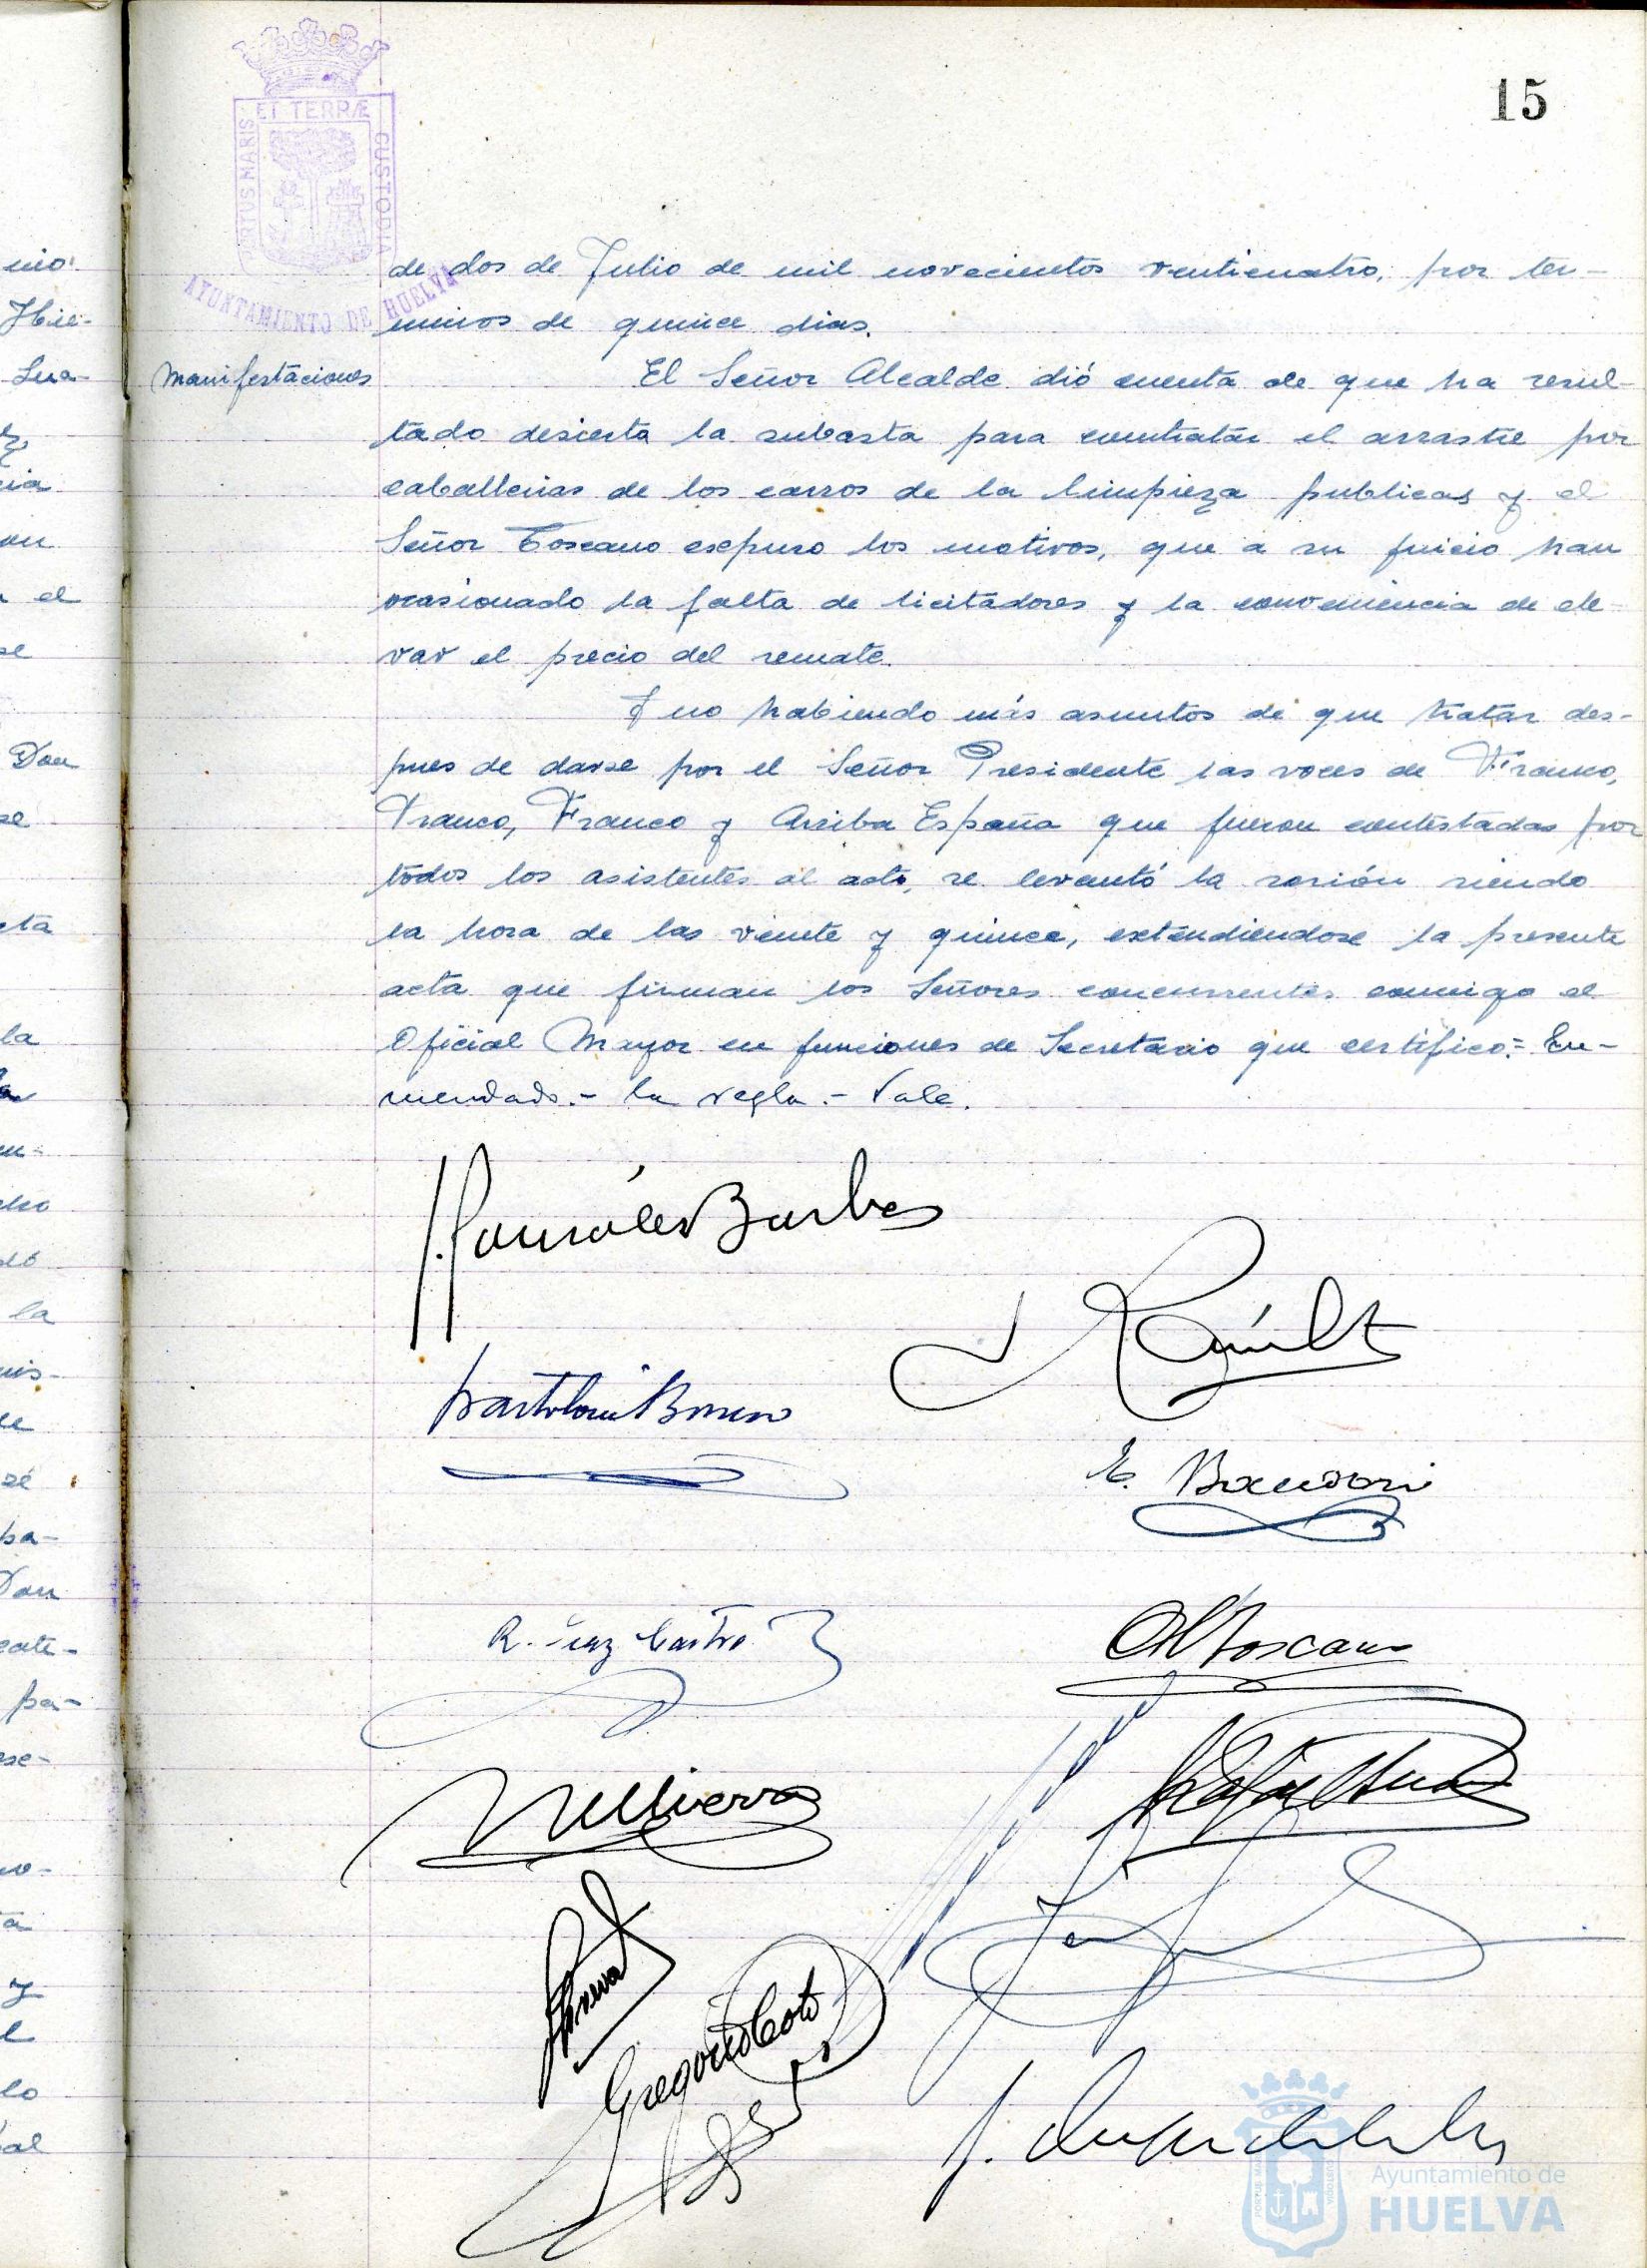 15
ET TERRÆ
CUSTODIA
AYUNTAMIENTO DE HUELVA
de dos de Julio de mil novecientos venticuatro, por ter-
minos de quince dias.
Manifestaciones
El Señor Alcalde dió cuenta de que ha resul-
tado desierta la subasta para contratar el arrastre por
caballerias de los carros de la limpieza publicas y el
Señor Toscano expuso los motivos, que a su juicio han
ocasionado la falta de licitadores y la conveniencia de ele-
var el precio del remate.
Y no habiendo más asuntos de que tratar des-
pues de darse por el Señor Presidente las voces de Franco,
Franco, Franco y Arriba España que fueron contestadas por
todos los asistentes al acto, se levantó la sesión siendo
la hora de las veinte y quince, extendiendose la presente
acta que firman los Señores concurrentes conmigo el
Oficial Mayor en funciones de Secretario que certifico.= En-
mendado.- la regla.- Vale.
J. González Barba
E.
R. Diaz Castro
Toscano
Gregorio Coto
Ayuntamiento de
HUELVA
mo
Hie-
Sua-
cia
on
a el
se
Don
se
cta
la
en-
cho
dó
la
ba-
Don
cate-
pa-
ese-
y
lo